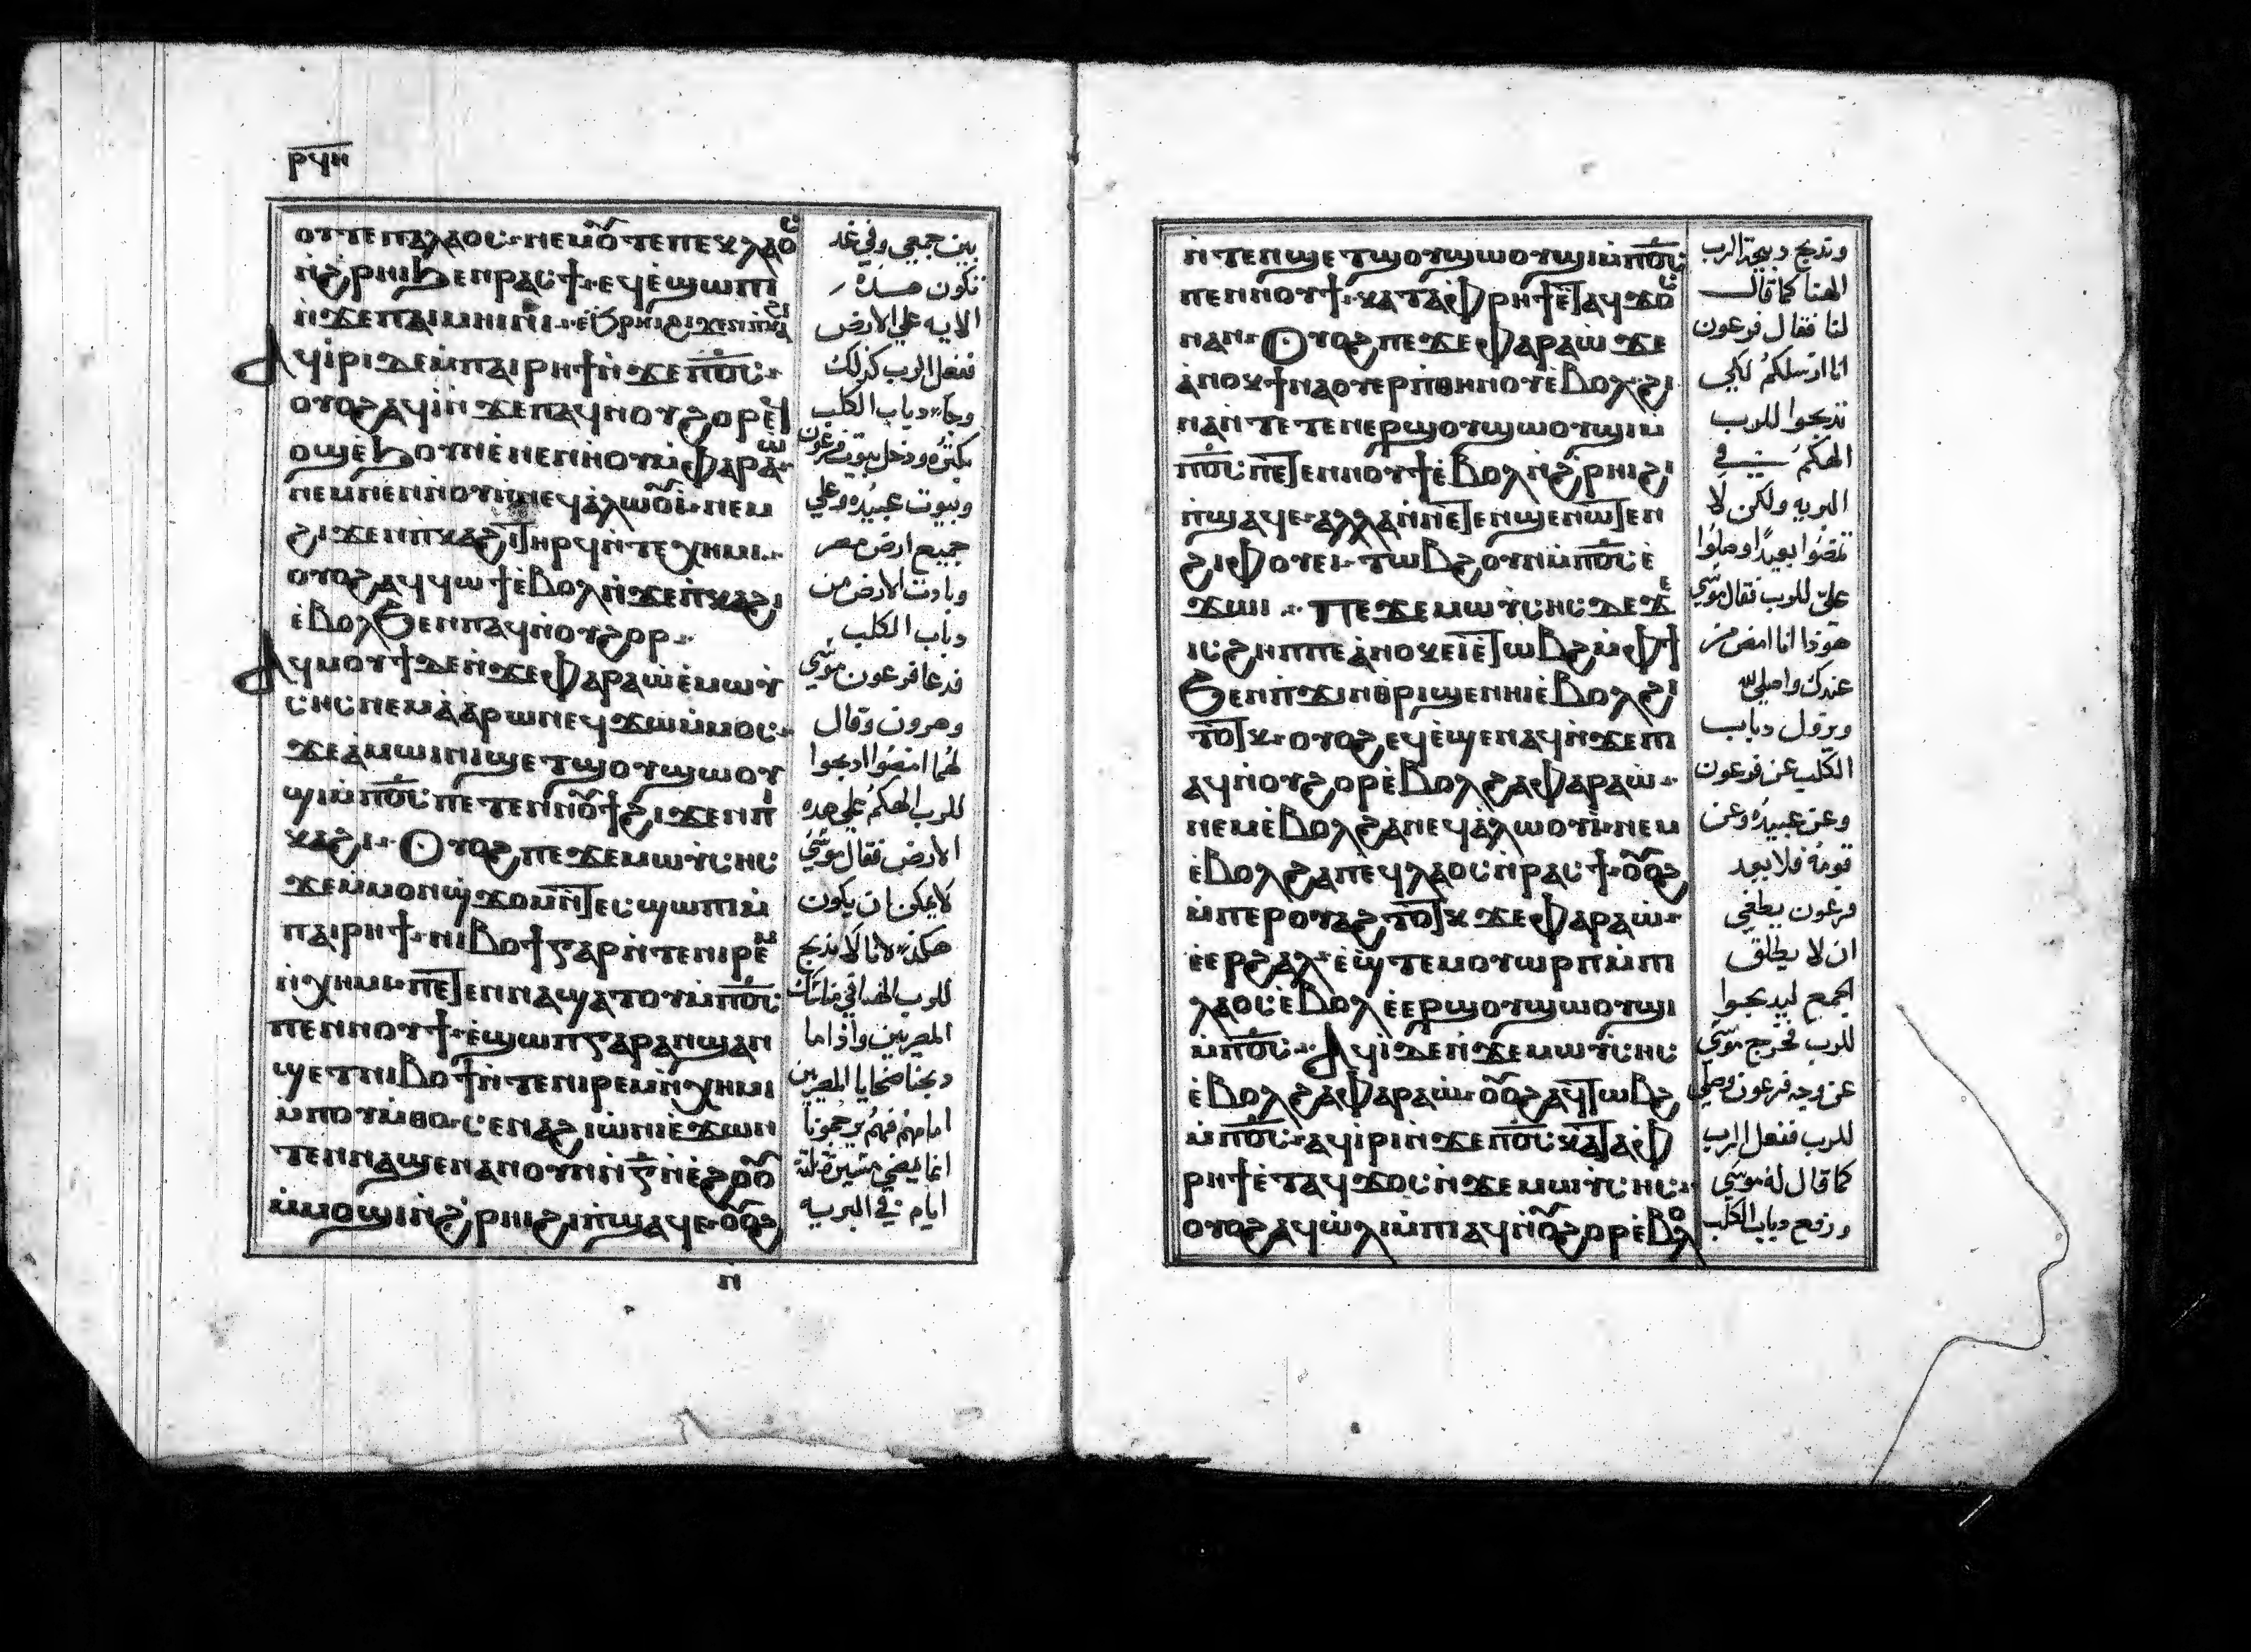 ⲣϥⲏ
ⲟⲩⲧⲉ ⲡⲁⲗⲁⲟⲥ ⲛⲉⲙⲟ̅ⲧⲉ ⲡⲉⲕⲗⲁⲟⲥ
ⲛ̀ϩ̀ⲣⲏⲓ ϧⲉⲛ ⲣⲁⲥϯ ⲉϥⲉ̀ϣⲱⲡⲓ
ⲛ̀ϫⲉ ⲡⲁⲓⲙⲏⲓⲛⲓ
ⲁϥⲓ̀ⲣⲓ ⲇⲉ ⲙ̀ⲡⲁⲓⲣⲏϯ ⲛ̀ϫⲉ ⲡ̅ⲟ̅ⲥ̅
ⲟⲩⲟϩ ⲁϥⲓ̀ ⲛ̀ϫⲉ ⲡⲁϥⲛⲟⲩϩⲟⲣ ⲉ̀
ⲟϣ ⲉ̀ϧⲟⲩⲛ ⲉ̀ⲛⲉⲛⲏⲟⲩ ⲙ̀ⲫⲁⲣⲁⲱ̀
ⲛⲉⲙ ⲛⲉⲛⲏⲟⲩ ⲛ̀ⲛⲉϥⲁ̀ⲗⲱⲟ̅ⲓ̀ ⲛⲉⲙ
ϩⲓϫⲉⲛ ⲡ̀ⲕⲁϩⲓ ⲧⲏⲣϥ ⲛ̀ⲧⲉ ⲭⲏⲙⲓ
ⲟⲩⲟϩ ⲁϥϥⲱϯ ⲉ̀ⲃⲟⲗ ⲛ̀ϫⲉ ⲡ̀ⲕⲁϩⲓ
ⲉ̀ⲃⲟⲗ ϧⲉⲛ ⲡⲁϥⲛⲟⲩϩⲟⲣ
ⲁϥⲙⲟⲩϯ ⲇⲉ ⲛ̀ϫⲉ ⲫⲁⲣⲁⲱ̀ ⲉ̀ⲙⲱⲩ̀
ⲥⲏⲥ ⲛⲉⲙ ⲁ̀ⲁ̀ⲣⲱⲛ ⲉϥϫⲱ ⲙ̀ⲙⲟⲥ
ϫⲉ ⲁ̀ⲙⲱⲓⲛⲓ ϣⲉⲧ ϣⲟⲩϣⲱⲟⲩ
ϣⲓ ⲙ̀ⲡ̅ⲟ̅ⲥ̅ ⲡⲉⲧⲉⲛⲛⲟ̅ϯ ϩⲓϫⲉⲛ ⲡ̀
ⲕⲁϩⲓ ⲟⲩⲟϩ ⲡⲉϫⲉ ⲙⲱⲩ̀ⲥⲏⲥ
ϫⲉ ⲙ̀ⲙⲟⲛ ϣϫⲟⲙ ⲛ̀ⲧⲉⲥϣⲱⲡⲓ ⲙ̀
ⲡⲁⲓⲣⲏϯ ⲛⲓⲃⲟϯ ⲅⲁⲣ ⲛ̀ⲧⲉ ⲛⲓⲣⲉⲙ
ⲛ̀ⲭⲏⲙⲓ ⲡⲉⲧⲉⲛⲛⲁϣⲁⲧⲟⲩ ⲙ̀ⲡ̅ⲟ̅ⲥ̅
ⲡⲉⲛⲛⲟⲩϯ ⲉ̀ϣⲱⲡ ⲅⲁⲣ ⲁⲛϣⲁⲛ
ϣⲉⲧ ⲛⲓⲃⲟϯ ⲛ̀ⲧⲉ ⲛⲓⲣⲉⲙⲛ̀ⲭⲏⲙⲓ
ⲙ̀ⲡⲟⲩⲙ̀ⲑⲟ ⲥⲉⲛⲁϩⲓⲱ̀ⲛⲓ ⲉ̀ϫⲱⲛ
ⲧⲉⲛⲛⲁϣⲉⲛⲁⲛ ⲟⲩⲛ ⲛ̀ⲅ̅ ⲛ̀ⲉ̀ϩⲟⲟ̅
ⲙ̀ⲙⲟϣⲓ ⲛ̀ϩ̀ⲣⲏⲓ ϩⲓ ⲡ̀ϣⲁϥⲉ ⲟⲟ̅ϩ
ⲛ
بين جمعي وفي غد
تكون هذه
الايه علي الارض
ففعل الرب كذلك
وجاء دباب الكلب
بكثره ودخل بيوت فرعون
وبيوت عبيده وعلي
جميع ارض مصر
وبادت الارض من
دباب الكلب
فدعا فرعون موسي
وهرون وقال
لهما امضوا ادبحوا
للرب الهكم علي هده
الارض فقال موسي
لا يمكن ان يكون
هكذا لاننا ندبح
للرب الهنا
المصريين واذا ما
دبحنا ضحايا المصريين
امامهم فهم يرجمونا
انما نمضي مسيرة ثلثة
ايام في البريه
ⲛ̀ⲧⲉⲛϣⲉⲧ ϣⲟⲩϣⲱⲟⲩϣⲓ ⲙ̀ⲡ̅ⲟ̅ⲥ̅
ⲡⲉⲛⲛⲟⲩϯ ⲕⲁⲧⲁ ⲫ̀ⲣⲏϯ ⲉ̀ⲧⲁϥϫⲟⲥ
ⲛⲁⲛ ⲟⲩⲟϩ ⲡⲉϫⲉ ⲫⲁⲣⲁⲱ̀ ϫⲉ
ⲁ̀ⲛⲟⲕ ϯⲛⲁⲟⲩⲉⲣⲡ ⲑⲏⲛⲟⲩ ⲉ̀ⲃⲟⲗ ϩⲓ
ⲛⲁ ⲛ̀ⲧⲉⲧⲉⲛⲉⲣϣⲟⲩϣⲱⲟⲩϣⲓ ⲙ̀
ⲡ̅ⲟ̅ⲥ̅ ⲡⲉⲧⲉⲛⲛⲟⲩϯ ⲉ̀ⲃⲟⲗ ⲛ̀ϩ̀ⲣⲏⲓ ϩⲓ
ⲡ̀ϣⲁϥⲉ ⲁⲗⲗⲁ ⲛ̀ⲛⲉⲧⲉⲛϣⲉⲛⲱⲧⲉⲛ
ϩⲓⲫⲟⲩⲉⲓ ⲧⲱⲃϩ ⲟⲩⲛ ⲙ̀ⲡ̅ⲟ̅ⲥ̅ ⲉ̀
ϫⲱⲓ ⲡⲉϫⲉ ⲙⲱⲩ̀ⲥⲏⲥ ⲇⲉ ϫⲉ
ⲓⲥϩⲏⲡⲡⲉ ⲁ̀ⲛⲟⲕ ⲉⲓⲉ̀ⲧⲱⲃϩ ⲙ̀ⲫϯ
ϧⲉⲛ ⲡ̀ϫⲓⲛⲑⲣⲓϣⲉⲛⲏⲓ ⲉ̀ⲃⲟⲗ ϩⲓ
ⲧⲟⲧⲕ ⲟⲩⲟϩ ⲉϥⲉ̀ϣⲉⲛⲁϥ ⲛ̀ϫⲉ ⲡⲓ
ⲁϥⲛⲟⲩϩⲟⲣ ⲉ̀ⲃⲟⲗ ϩⲁ ⲫⲁⲣⲁⲱ̀
ⲛⲉⲙ ⲉ̀ⲃⲟⲗ ϩⲁ ⲛⲉϥⲁ̀ⲗⲱⲟⲩⲓ̀ ⲛⲉⲙ
ⲉ̀ⲃⲟⲗ ϩⲁ ⲡⲉϥⲗⲁⲟⲥ ⲛ̀ⲣⲁⲥϯ ⲟⲟ̅ϩ
ⲙ̀ⲡⲉⲣⲟⲩⲁϩⲧⲟⲧⲕ ϫⲉ ⲫⲁⲣⲁⲱ̀
ⲉ̀ⲉⲣϩⲁⲗ ⲉ̀ϣⲧⲉⲙⲟⲩⲱⲣⲡ ⲙ̀ⲡⲓ
ⲗⲁⲟⲥ ⲉ̀ⲃⲟⲗ ⲉ̀ⲉⲣϣⲟⲩϣⲱⲟⲩϣⲓ
ⲙ̀ⲡ̅ⲟ̅ⲥ̅ ⲁϥⲓ̀ ⲇⲉ ⲛ̀ϫⲉ ⲙⲱⲩ̀ⲥⲏⲥ
ⲉ̀ⲃⲟⲗ ϩⲁ ⲫⲁⲣⲁⲱ̀ ⲟⲟ̅ϩ ⲁϥⲧⲱⲃϩ
ⲙ̀ⲡ̅ⲟ̅ⲥ̅ ⲁϥⲓ̀ⲣⲓ ⲛ̀ϫⲉ ⲡ̅ⲟ̅ⲥ̅ ⲕⲁⲧⲁ ⲫ̀
ⲣⲏϯ ⲉ̀ⲧⲁϥϫⲟⲥ ⲛ̀ϫⲉ ⲙⲱⲩ̀ⲥⲏⲥ
ⲟⲩⲟϩ ⲁϥⲱ̀ⲗⲓ ⲙ̀ⲡⲓⲁϥⲛ̀ⲟ̅ϩⲟⲣ ⲉ̀ⲃⲟⲗ
وندبح دبيحة للرب
الهنا كما قال
لنا فقال فرعون
انا ارسلكم لكي
تدبحوا للرب
الهكم في
البريه ولكن لا
تمضوا بعيدا وصلوا
علي للرب فقال موسي
هوذا انا امضي من
عندك واصلي لله
ويزول دباب
الكلب عن فرعون
وعن عبيده وعن
قومه فلا يعد
فرعون يطغي
ان لا يطلق
الجمع ليدبحوا
للرب فخرج موسي
عن وجه فرعون وصلي
للرب ففعل الرب
كما قال له موسي
ورفع دباب الكلب